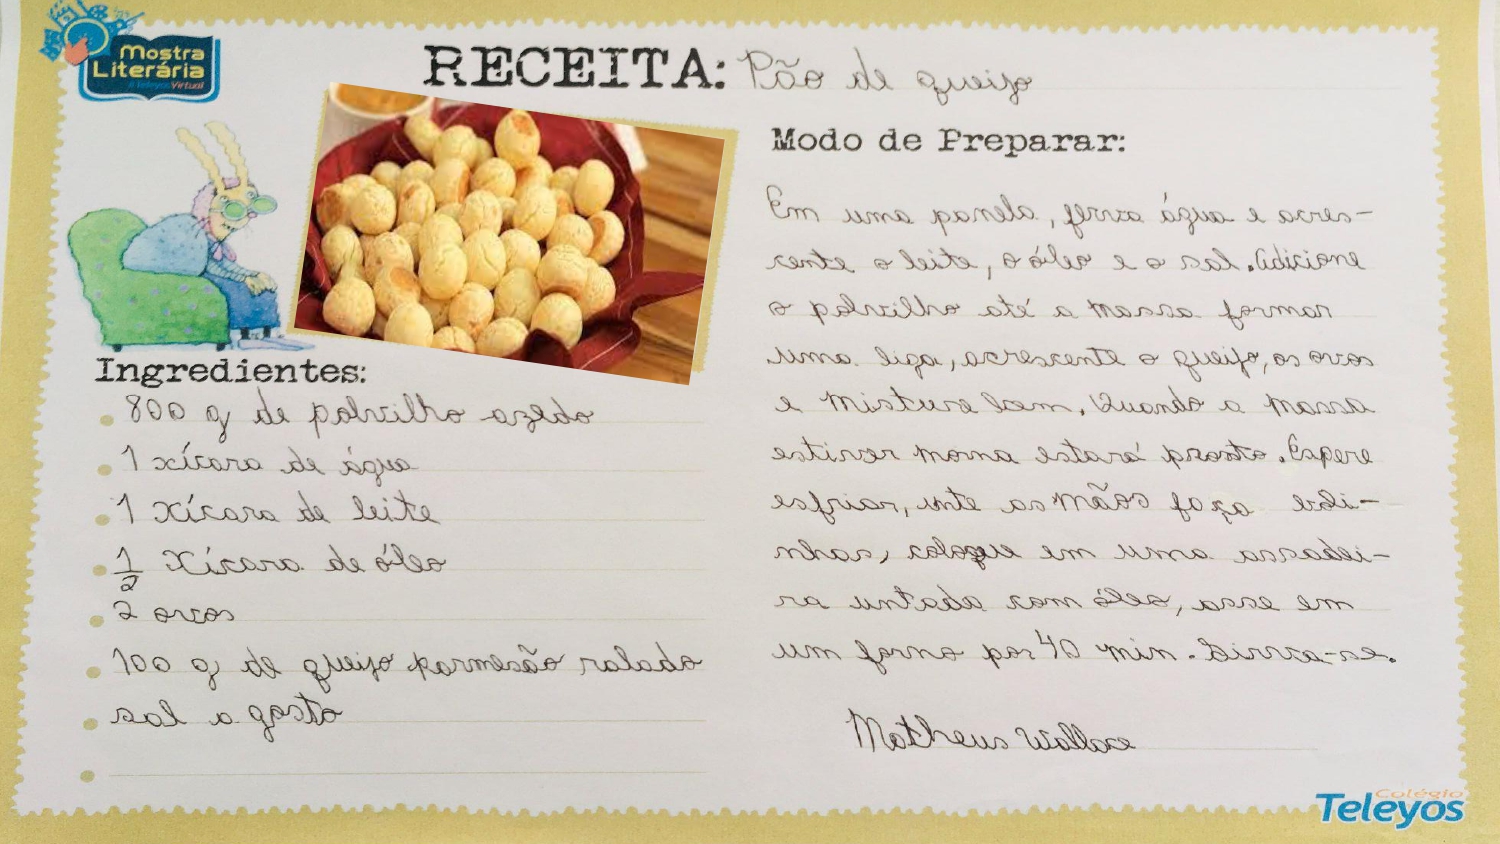 Mostra
Literária
A Teleyos Virtual
RECEITA: Pão de queijo
Ingredientes:
800 g de polvilho azedo
1 xícara de água
1 xícara de leite
1/2 xícara de óleo
2 ovos
100 g de queijo parmesão ralado
sal a gosto
Modo de Preparar:
Em uma panela, ferva água e acres-
cente o leite, o óleo e o sal. Adicione
o polvilho até a massa formar
uma liga, acrescente o queijo, os ovos
e misture bem. Quando a massa
estiver morna estará pronto. Espere
esfriar, unte as mãos faça boli-
nhas, coloque em uma assadei-
ra untada com óleo, asse em
um forno por 40 min. Sirva-se.
Matheus Wallace
Colégio
Teleyos